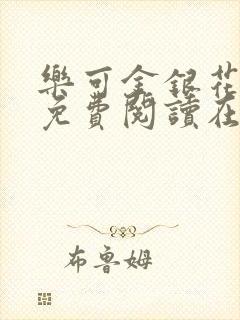 樂可金銀花
免費閱讀在
布魯姆